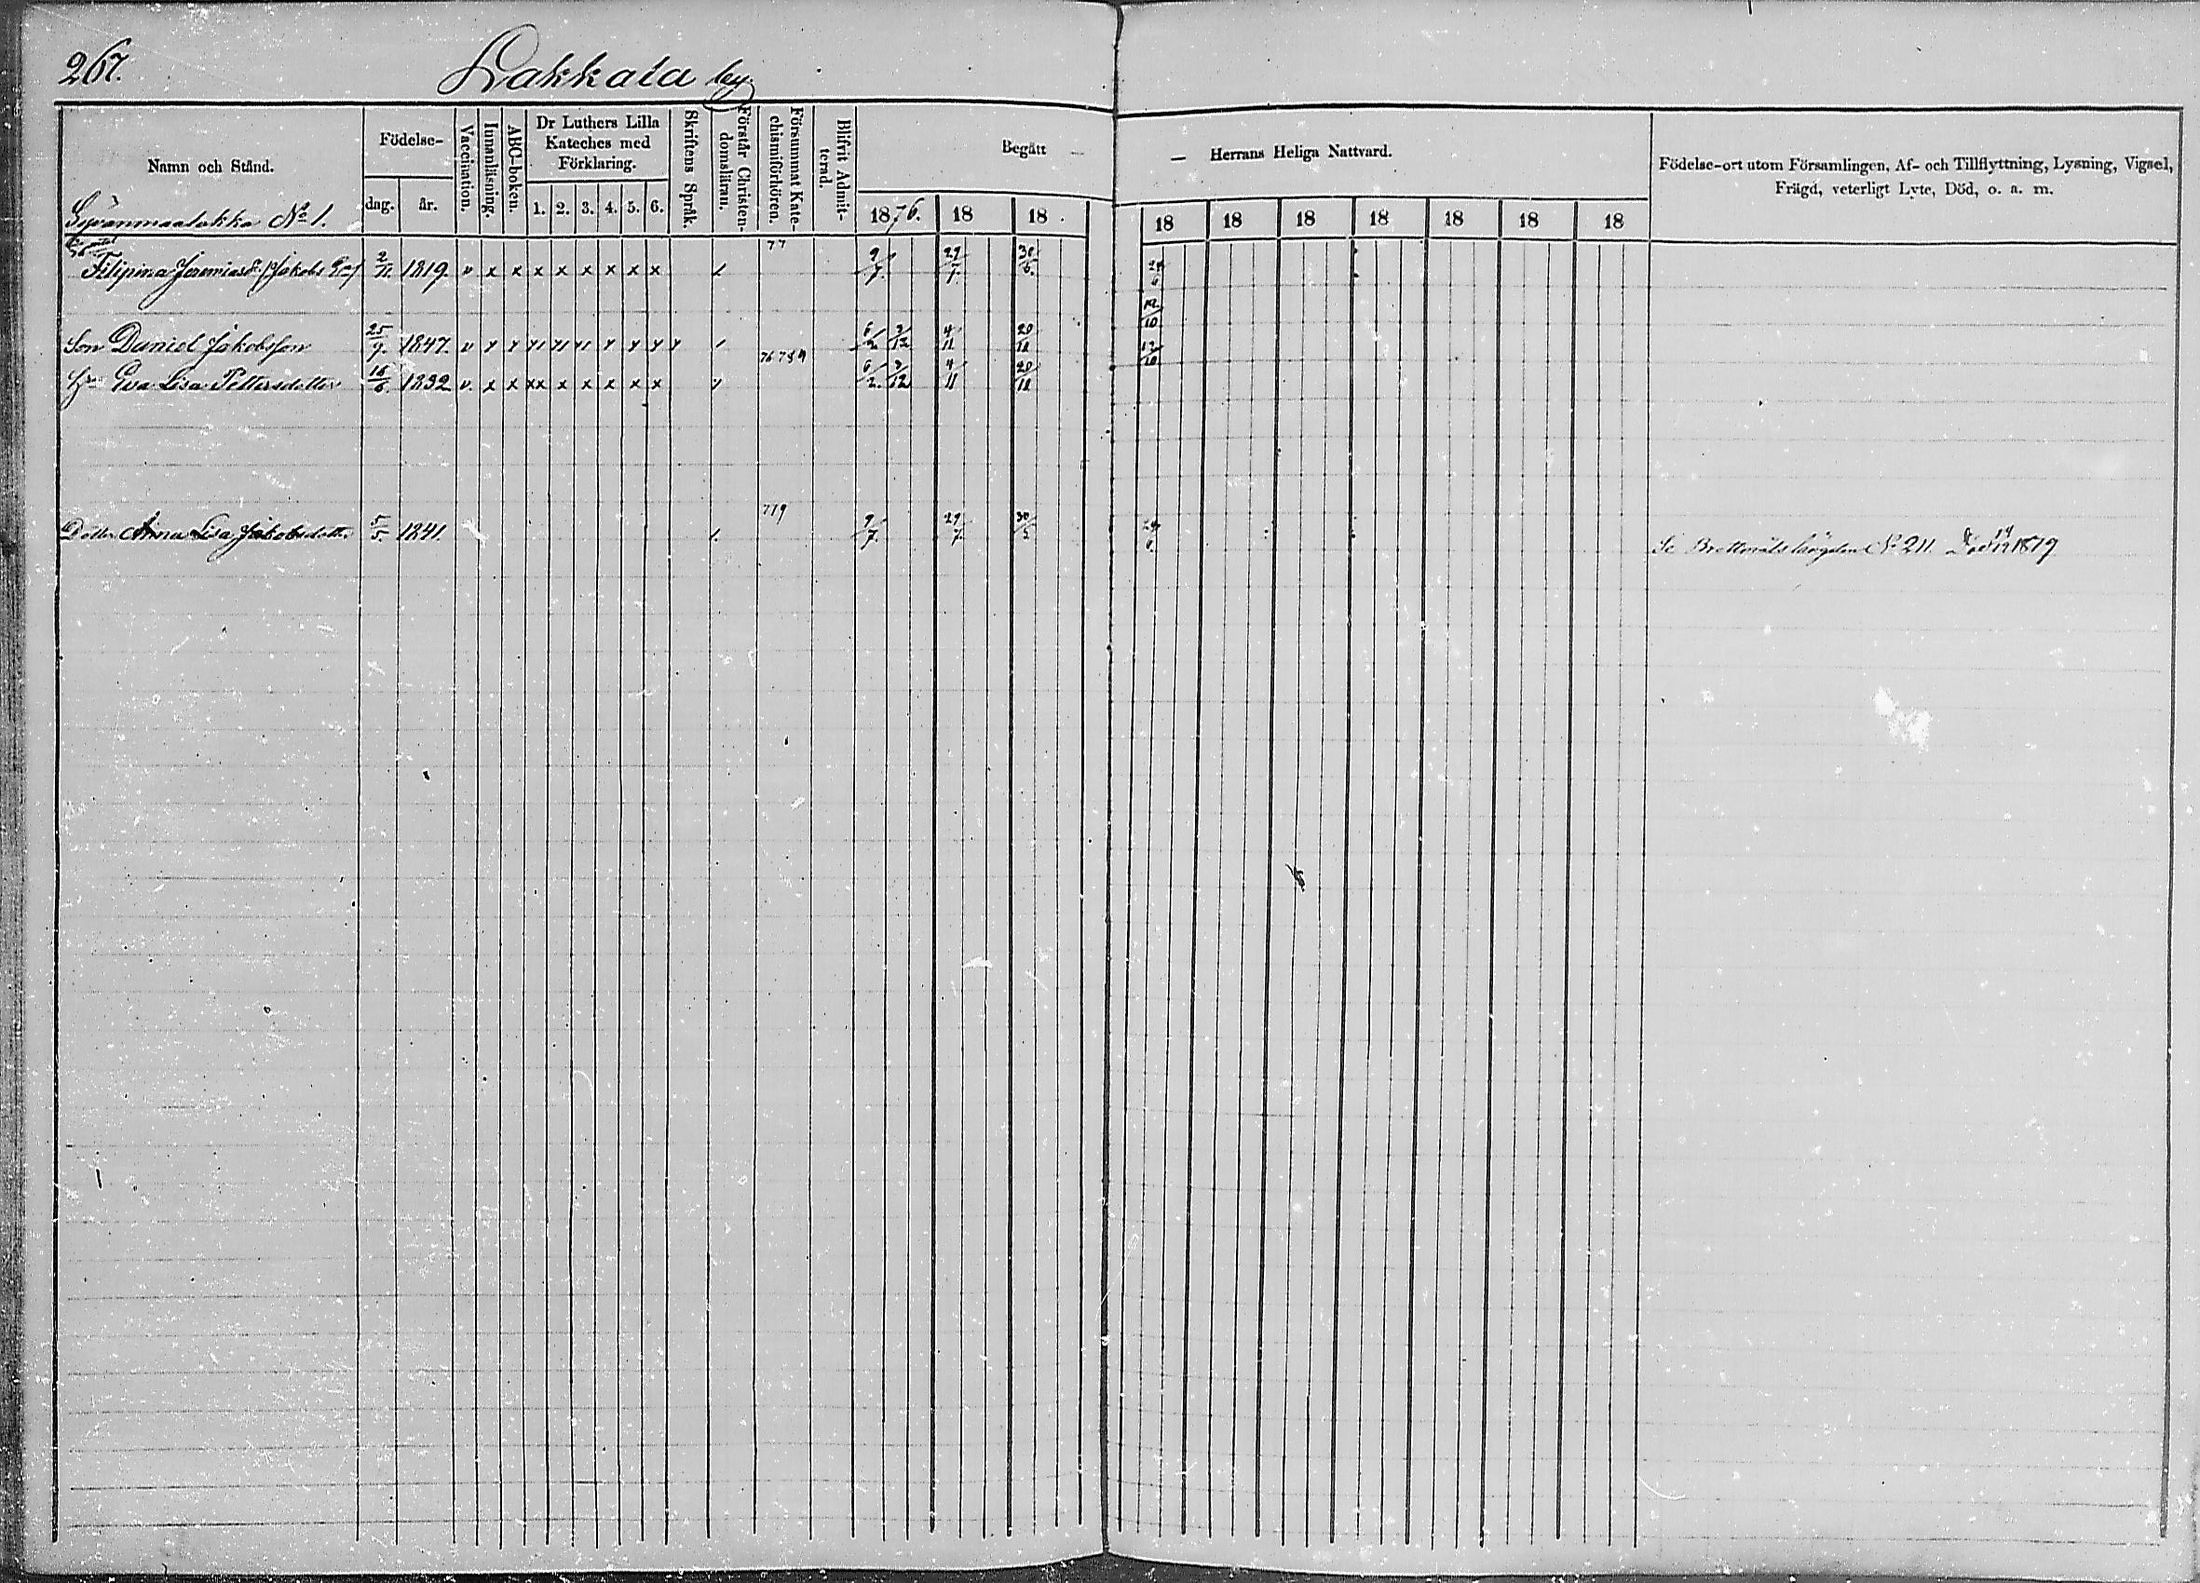 267.
Lakkala by
Namn och Stånd.
Födelse-
dag.
år.
Vaccination.
Innanläsning.
ABC-boken.
Dr Luthers Lilla
Kateches med
Förklaring.
1. 2. 3. 4. 5. 6.
Skriftens Språk.
Förstår Christen-
domsläran.
Försummat Kate-
chismiförhören.
Blifvit Admit-
terad.
Begått —
1876. 18 18
— Herrans Heliga Nattvard.
18 18 18 18 18 18 18
Födelse-ort utom Församlingen, Af- och Tillflyttning, Lysning, Vigsel,
Frägd, veterligt Lyte, Död, o. a. m.
Syvänmaalakka No 1.
Filipina Jeremiasdr (Jakobs Enk) 2/11 1819. v x x x x x x x x 77 9/7. 29/7. 30/5.
12/10
Son Daniel Jakobsson 25/9. 1847. v 6/2 3/12 4/11 20/11 12/10
76 78 9
Hu Eva Lisa Pettersdotter 16/6. 1832 v. x x xx x x x x x 6/2. 3/12 4/11 20/11
Dotter Anna Lisa Jakobsdotter 5/5. 1841. 779 9/7. 29/7. 30/5
Se No 211. 1879